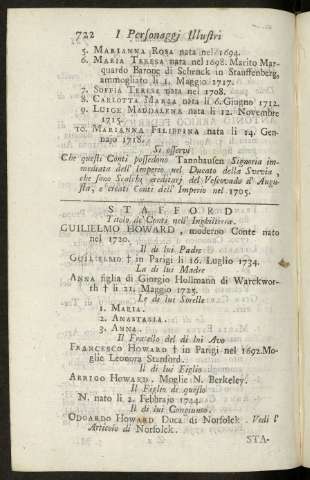 722 I Personaggi Illustri
5. MARIANNA ROSA nata nel 1694.
6. MARIA TERESA nata nel 1698. Marito Mar-
quardo Barone di Schenck in Stauffenberg,
ammogliato li 1. Maggio 1717.
7. SOFFIA TERESA nata nel 1708.
8. CARLOTTA MARIA nata li 6. Giugno 1712.
9. LUIGE MADDALENA nata li 12. Novembre
1715.
10. MARIANNA FILIPPINA nata li 14. Gen-
najo 1718.
Si osservi
Che questi Conti possedono Tannhausen Signoria im-
mediata dell' Imperio nel Ducato della Suevia,
che sono Scalchi ereditarj del Vescovado d' Augu-
sta, e creati Conti dell' Imperio nel 1705.
STAFFORD
Titolo di Conte nell' Inghilterra.
GUILIELMO HOWARD, moderno Conte nato
nel 1720.
Il di lui Padre
GUILIELMO † in Parigi li 16. Luglio 1734.
La di lui Madre
ANNA figlia di Giorgio Hollmann di Warckwor-
th † li 21. Maggio 1725.
Le di lui Sorelle
1. MARIA.
2. ANASTAGIA.
3. ANNA.
Il Fratello del di lui Avo
FRANCESCO HOWARD † in Parigi nel 1692. Mo-
glie Leonora Stanford.
Il di lui Figlio
ARRIGO HOWARD. Moglie N. Berkeley.
Il Figlio di questo
N. nato li 2. Febbrajo 1744.
Il di lui Congiunto.
ODOARDO HOWARD Duca di Norfolck. Vedi l'
Articolo di Norfolck.
STA-